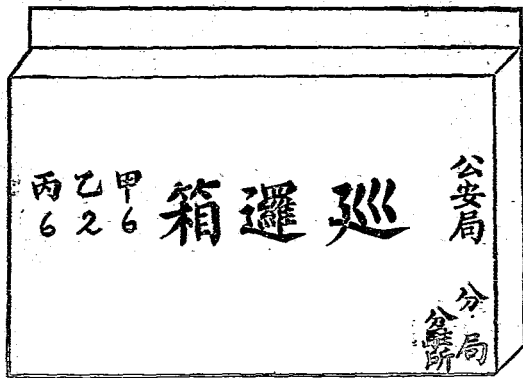 公安局　分局
分駐所
巡邏箱
甲6
乙2
丙6